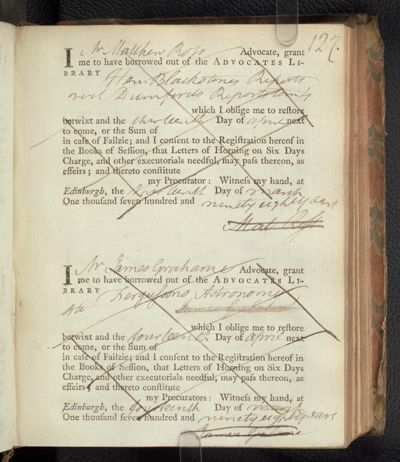 127.
I Mr Matthew Ross Advocate, grant
me to have borrowed out of the ADVOCATES LI-
BRARY Hen. Blackstones Reports
and Durnfords Reports
which I oblige me to restore
betwixt and the thirteenth Day of April next
to come, or the Sum of
in case of Failzie; and I consent to the Registration hereof in
the Books of Session, that Letters of Horning on Six Days
Charge, and other executorials needful, may pass thereon, as
effeirs; and constitute
my Procurator: Witness my hand, at
Edinburgh, the thirteenth Day of March
One thousand seven hundred and ninety eight years
Mat. Ross
I Mr James Grahame Advocate, grant
me to have borrowed out of the ADVOCATES LI-
BRARY Fergusons Astronomy
4to
which I oblige me to restore
betwixt and the fourteenth Day of April next
to come, or the Sum of
in case of Failzie; and I consent to the Registration hereof in
the Books of Session, that Letters of Horning on Six Days
Charge, and other executorials needful, may pass thereon, as
effeirs; and thereto constitute
my Procurator: Witness my hand, at
Edinburgh, the fourteenth Day of March
One thousand seven hundred and ninety eight years
James Grahame